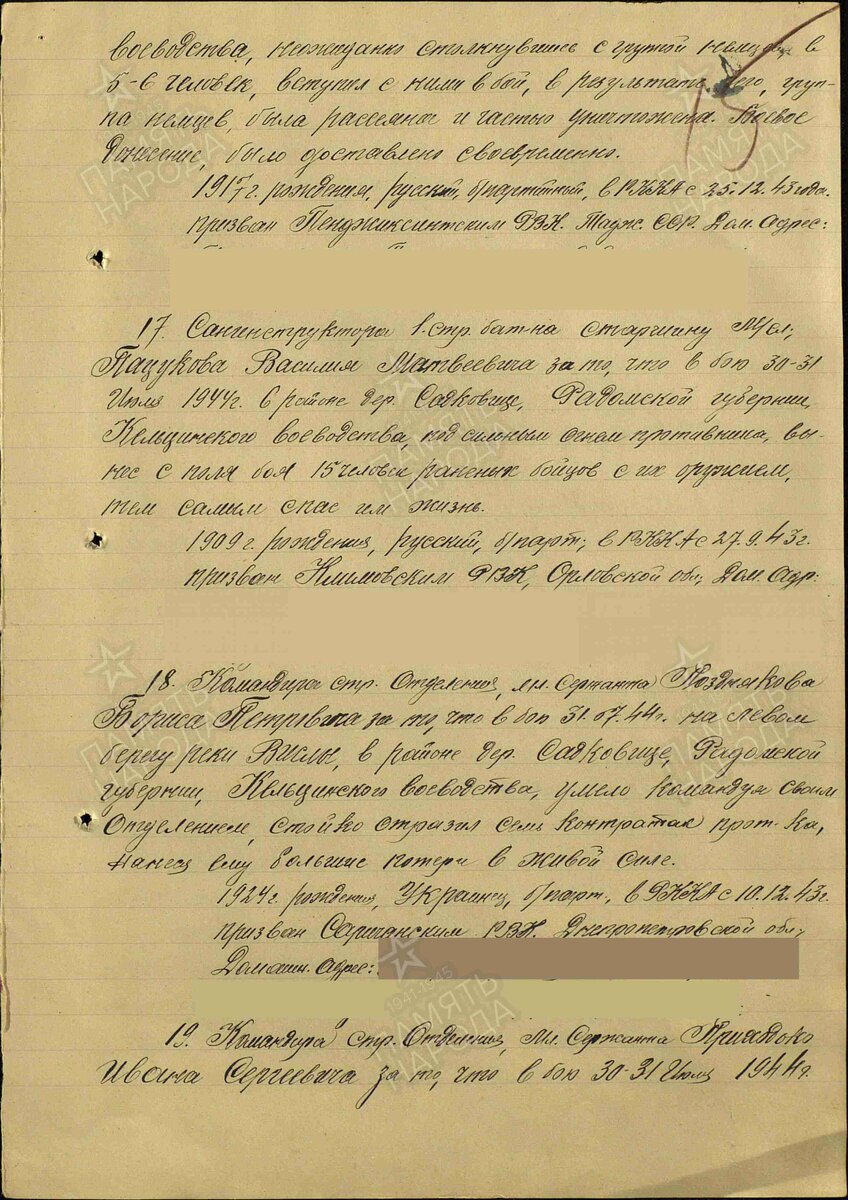 воеводства, неожиданно столкнувшись с группой немцев в
5-6 человек, вступил с ними в бой, в результате чего, груп-
па немцев, была рассеяна и частью уничтожена. Боевое
донесение, было доставлено своевременно.
1917 г. рождения, русский, б/партийный, в РККА с 25.12.43 года.
призван Пенджикентским РВК. Тадж. ССР. Дом. Адрес:
17. Санинструктора 1 стр. бат-на старшину М/сл;
Пацукова Василия Матвеевича за то, что в бою 30-31
Июля 1944 г. в районе дер. Садковице, Радомской губернии,
Кельцинского воеводства, под сильным огнем противника, вы-
нес с поля боя 15 человек раненых бойцов с их оружием,
тем самым спас им жизнь.
1909 г. рождения, русский, б/парт; в РККА с 27.9.43 г.
призван Климовским РВК, Орловской обл; Дом. Адр:
18. Командира стр. Отделения, мл. Сержанта Позднякова
Бориса Петровича за то, что в бою 31.07.44 г. на левом
берегу реки Вислы, в районе дер. Садковице, Радомской
губернии, Кельцинского воеводства, умело командуя своим
Отделением, стойко отразил семь контратак прот-ка,
нанеся ему большие потери в живой силе.
1924 г. рождения, Украинец, б/парт, в РККА с 10.12.43 г.
призван РВК. Днепропетровской обл;
Домашн. Адрес:
19. Командира стр. Отделения, Мл. Сержанта Приходько
Ивана Сергеевича за то, что в бою 30-31 Июля 1944 г.
15
ПАМЯТЬ
НАРОДА
1941-1945